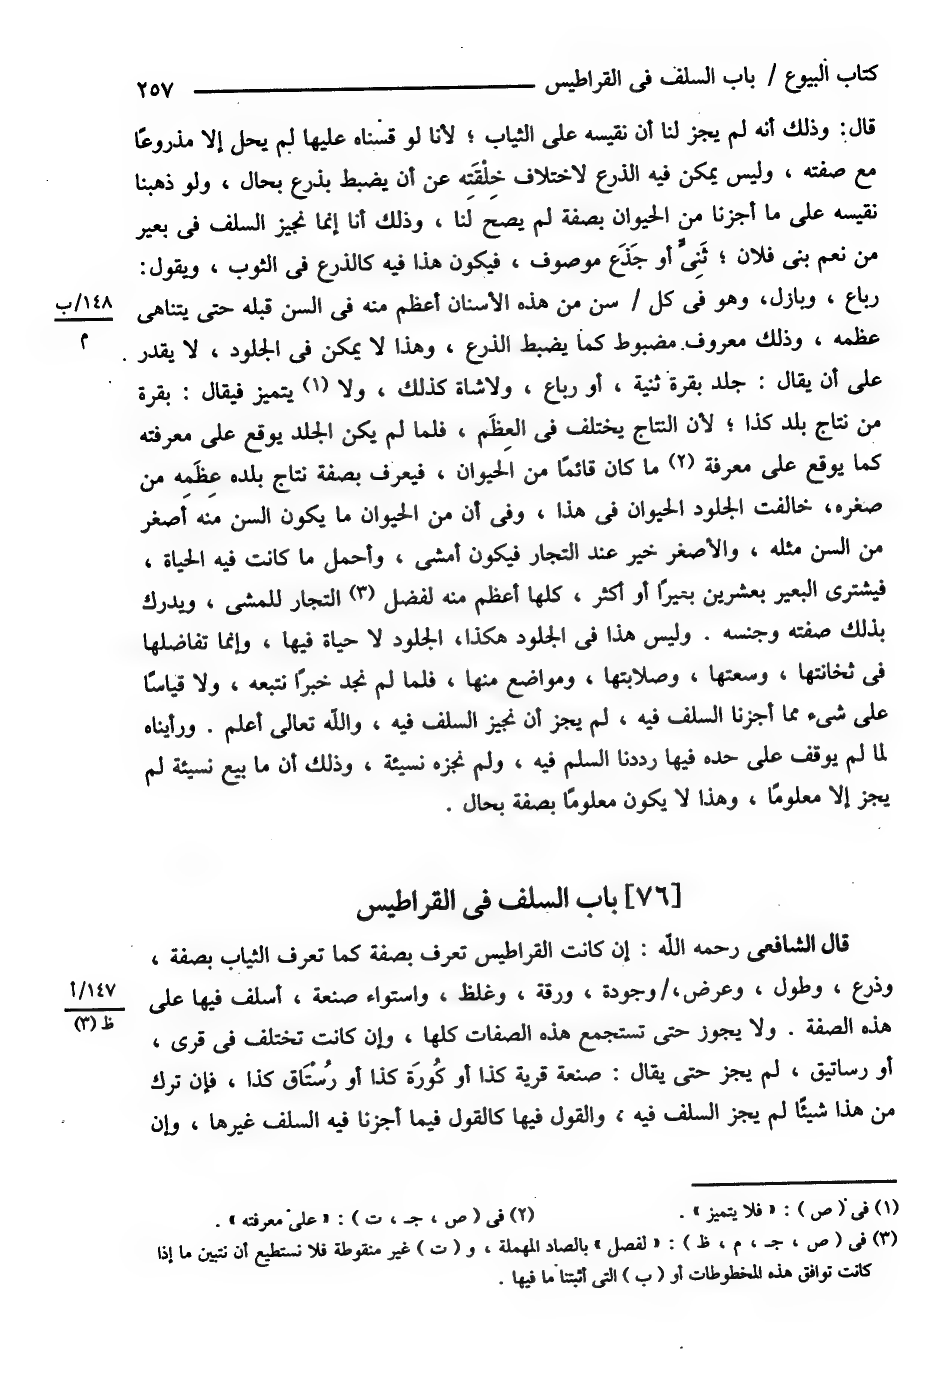 كتاب البيوع / باب السلف فى القراطيس ٢٥٧
قال: وذلك أنه لم يجز لنا أن نقيسه على الثياب ؛ لأنا لو قسناه عليها لم يحل إلا مذروعًا
مع صفته ، وليس يمكن فيه الذرع لاختلاف خِلْقَتِه عن أن يضبط بذرع بحال ، ولو ذهبنا
نقيسه على ما أجزنا من الحيوان بصفة لم يصح لنا ، وذلك أنا إنما نجيز السلف فى بعير
من نعم بنى فلان ؛ ثَنِىٍّ أو جَذَع موصوف ، فيكون هذا فيه كالذرع فى الثوب ، ويقول:
رباع ، وبازل، وهو فى كل / سن من هذه الأسنان أعظم منه فى السن قبله حتى يتناهى
١٤٨/ب
م
عظمه ، وذلك معروف مضبوط كما يضبط الذرع ، وهذا لا يمكن فى الجلود ، لا يقدر
على أن يقال : جلد بقرة ثنية ، أو رباع ، ولاشاة كذلك ، ولا (١) يتميز فيقال : بقرة
من نتاج بلد كذا ؛ لأن النتاج يختلف فى العِظَم ، فلما لم يكن الجلد يوقع على معرفته
كما يوقع على معرفة (٢) ما كان قائمًا من الحيوان ، فيعرف بصفة نتاج بلده عِظَمِه من
صغره، خالفت الجلود الحيوان فى هذا ، وفى أن من الحيوان ما يكون السن منه أصغر
من السن مثله ، والأصغر خير عند التجار فيكون أمشى ، وأحمل ما كانت فيه الحياة ،
فيشترى البعير بعشرين بعيرًا أو أكثر ، كلها أعظم منه لفضل (٣) التجار للمشى ، ويدرك
بذلك صفته وجنسه . وليس هذا فى الجلود هكذا، الجلود لا حياة فيها ، وإنما تفاضلها
فى ثخانتها ، وسعتها ، وصلابتها ، ومواضع منها ، فلما لم نجد خبرًا نتبعه ، ولا قياسًا
على شىء مما أجزنا السلف فيه ، لم يجز أن نجيز السلف فيه ، واللّه تعالى أعلم . ورأيناه
لما لم يوقف على حده فيها رددنا السلم فيه ، ولم نجزه نسيئة ، وذلك أن ما بيع نسيئة لم
يجز إلا معلومًا ، وهذا لا يكون معلومًا بصفة بحال .
[٧٦] باب السلف فى القراطيس
قال الشافعى رحمه اللّه : إن كانت القراطيس تعرف بصفة كما تعرف الثياب بصفة ،
وذرع ، وطول ، وعرض،/ وجودة ، ورقة ، وغلظ ، واستواء صنعة ، أسلف فيها على
١٤٧/أ
ظ (٣)
هذه الصفة . ولا يجوز حتى تستجمع هذه الصفات كلها ، وإن كانت تختلف فى قرى ،
أو رساتيق ، لم يجز حتى يقال : صنعة قرية كذا أو كُورَة كذا أو رُسْتَاق كذا ، فإن ترك
من هذا شيئًا لم يجز السلف فيه ؛ والقول فيها كالقول فيما أجزنا فيه السلف غيرها ، وإن
(١) فى ( ص ) : « فلا يتميز » .
(٢) فى ( ص ، جـ ، ت ) : « على معرفته » .
(٣) فى ( ص ، جـ ، م ، ظ ) : « لفصل » بالصاد المهملة ، و ( ت ) غير منقوطة فلا نستطيع أن نتبين ما إذا
كانت توافق هذه المخطوطات أو ( ب ) التى أثبتنا ما فيها .